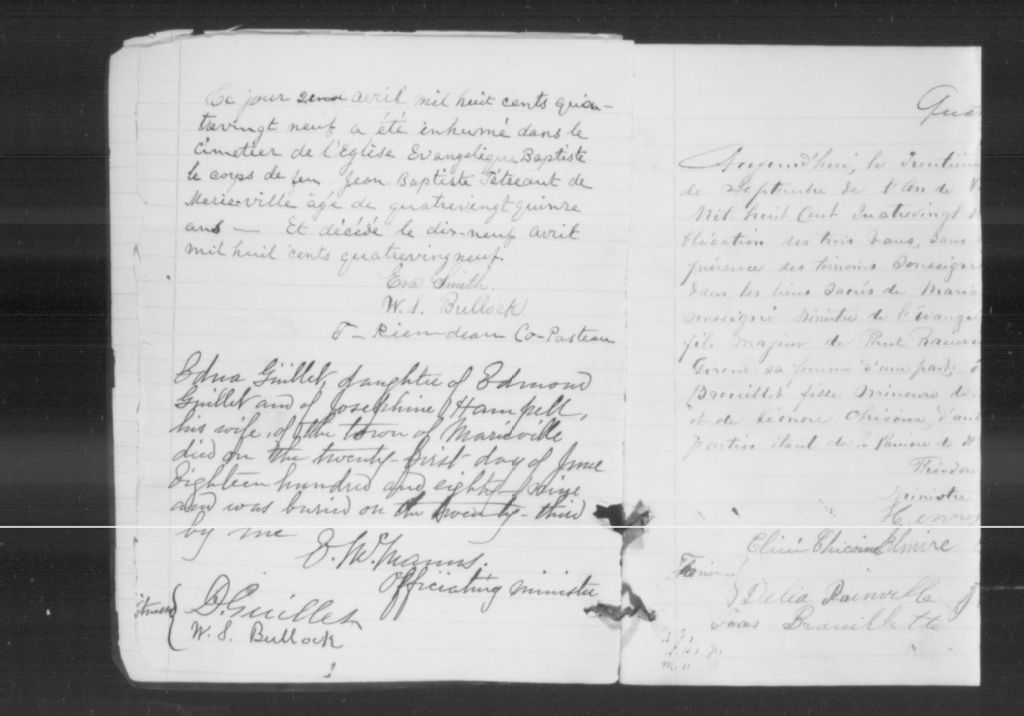 Ce jour 2eme avril mil huit cents quatr-
trevingt neuf a été inhumé dans le
cimetier de l'Eglise Evangelique Baptiste
le corps de feu Jean Baptiste Tétreaut de
Marieville âgé de quatrevingt quinze
ans — Et décédé le dix-neuf avrit
mil huil cents quatreving neuf.
Eva Smith.
W. S. Bullock
T- Riendeau Co-Pasteau
Edna Guillet, daughter of Edmond
Guillet and of Josephine Hampell,
his wife, of the town of Marieville
died on the twenty-first day of June
Eighteen hundred and eighty-nine
and was buried on the twenty-third
by me
Officiating minister
D. Guillet
W. S. Bullock
Aujourd'hui, le trentième
de Septembre de l'An de
Mil huit Cent Quatrevingt
blication des trois bans, sans
présence des témoins soussign
dans les liens sacrés du Maria
soussigné Ministre de l'évangi
fils majeur de Paul
sa femme d'une part; 
Brouillet fille Mineure de
et de Léonore Chicoine, d'au
parties étant de la Paroisse de
Théodor
ministre
Henry
Chicoine Elmire
Délia Rainville
Brouillette